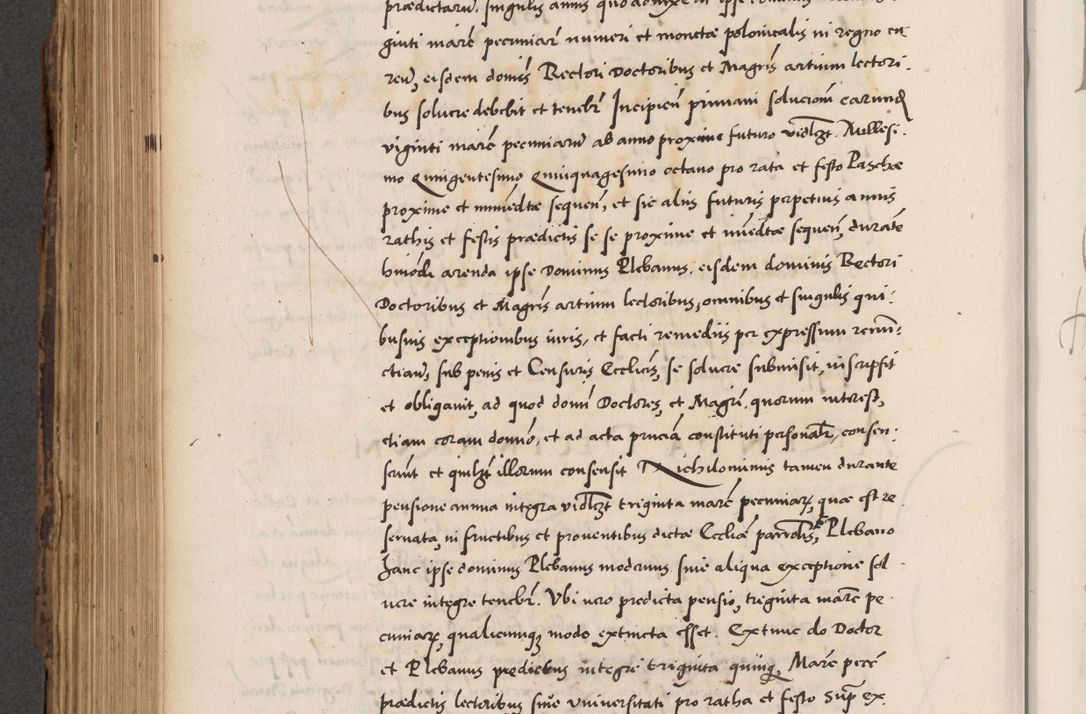 prædictarum, singulis annis quo advixe
ginti marc pecuniar numeri et monetæ polonicalis in regno cu
ren, eisdem dominis Rectori Doctoribus et Magris artium lectori
bus solvere debebit et tenebr Incipien primam solucionem earund
viginti marc pecuniaru ab anno proximæ futuro vidlzt. Millesi
mo Quingentesimo Quinquagesimo octavo pro rata et festo Paschæ
proxime et immedte sequen, et sic aliis futuris perpetuis annis
rathis et festis prædictis se se proxime et imedte sequen, durate
hmodi arenda ipse Dominus Plebanus. eisdem dominis Rectori
Doctoribus et Magris artium lectoribus, omnibus et singulis qui
busvis exceptionibus iuris, et facti remediis per expressum renun
ctian, sub penis et Censuris Ecclicis, se solvere submisit, inscripsit
et obligavit, ad quod domi Doctores, et Magri, quorum interest,
etiam coram domino, et ad acta prncia constituti personalr, consen
serunt et quilzt illorum consensit Nichilominus tamen durante
pensione annua integra vidlzt triginta marc pecuniar, quæ est re
servata, in fructibus et proventibus dictæ Ecclliæ parrolis, Plebano
hanc ipse dominus Plebanus modernus sine aliqua exceptione sol
vere integre tenebr. Ubi vero predicta pensio, triginta marc pe
cuniar, qualicunq modo extincta esset. Extunc do Doctor
et Plebanus predictus integre triginta quinq Marc pecc
prædictis lectoribus sive universitati pro ratha et festo sup ex